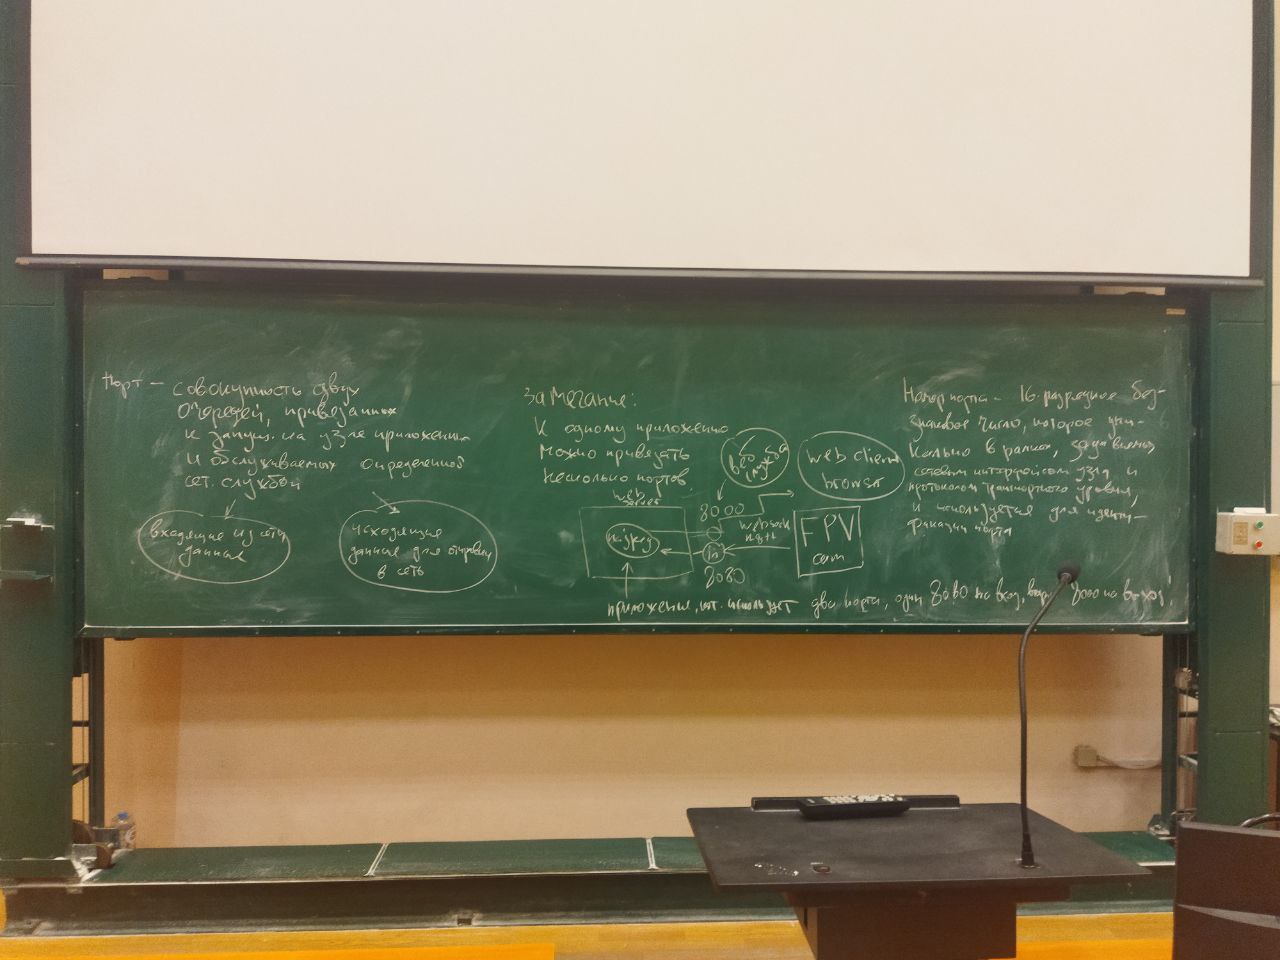 Порт — совокупность двух
очередей, привязанных
к запущ. на узле приложению
и обслуживаемых определенной
сет. службой
входящие из сети
данные
исходящие
данные для отправки
в сеть
Замечание:
К одному приложению
можно привязать
несколько портов
веб
служба
web client
browser
web
server
8000
websock
in
8080
FPV
cam
приложение, кот. использует два порта, один 8080 на вход, 8000 на выход!
Номер порта - 16-разрядное без-
знаковое число, которое уни-
кально в рамках,
сетевым интерфейсом узла и
протоколом транспортного уровня,
и используется для иденти-
фикации порта